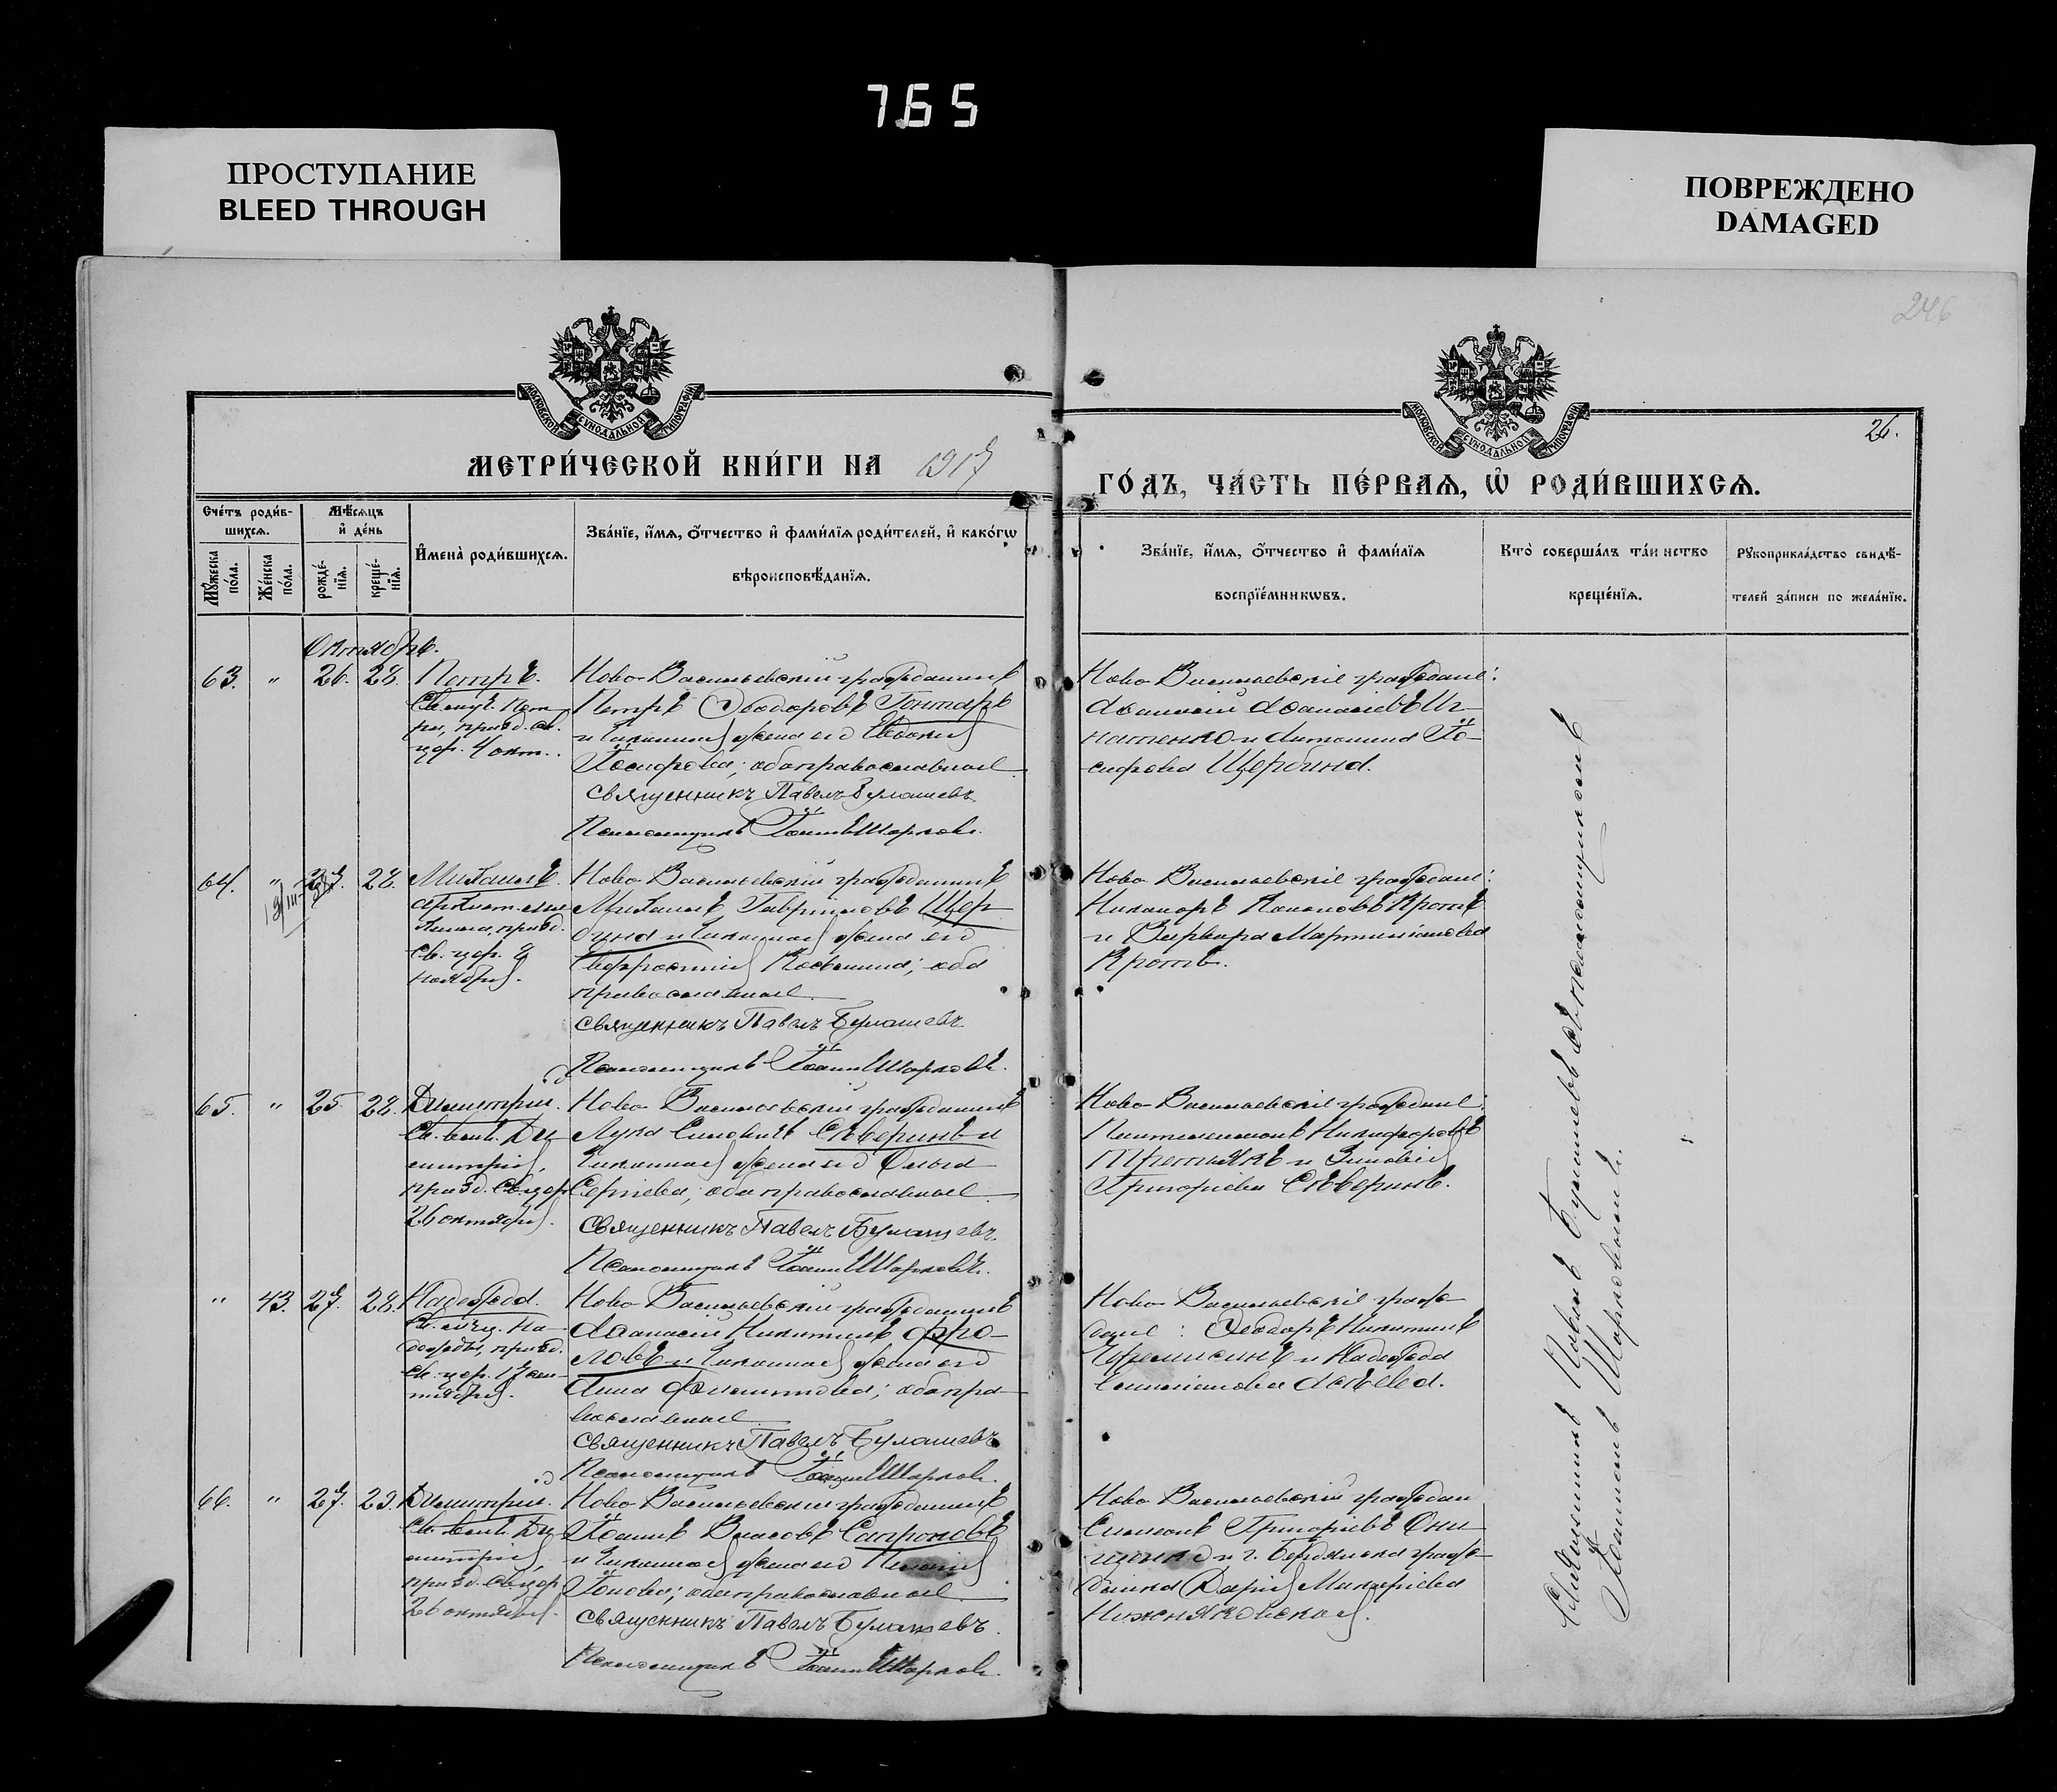 765
ПРОСТУПАНИЕ
BLEED THROUGH
ПОВРЕЖДЕНО
DAMAGED
246
МОСКОВСКОЙ СѴНОДАЛЬНОЙ ТИПОГРАФІИ
МОСКОВСКОЙ СѴНОДАЛЬНОЙ ТИПОГРАФІИ
26.
МЕТРИ́ЧЕСКОЙ КНИ́ГИ НА 1917
ГО́ДЪ, ЧА́СТЬ ПЕ́РВАѦ, Ѡ҆ РОДИ́ВШИХСѦ.
Сче́тъ роди́в-
шихсѧ.
Мꙋ́жеска по́ла.
Же́нска по́ла.
Мѣ́сѧцъ
и҆ де́нь
рожде́-нїѧ.
креще́-нїѧ.
И҆мена̀ роди́вшихсѧ.
Зва́нїе, и҆́мѧ, ѻ҆́тчество и҆ фами́лїѧ роди́телей, и҆ како́гѡ
вѣроисповѣ́данїѧ.
Зва́нїе, и҆́мѧ, ѻ҆́тчество и҆ фами́лїѧ
воспрїе́мникѡвъ.
Кто̀ соверша́лъ та́инство
креще́нїѧ.
Рꙋкоприкла́дство свидѣ́-
телей за́писи по жела́нїю.
Октябрь.
63. " 26. 28. Петръ.
Св. муч. Пет-
ра, празд. св.
цер. 4 окт.
Ново-Васильевскій гражданинъ
Петръ Ѳеодоровъ Гонтарь
и законная жена его Евдокія
Іосифова; оба православные.
Священникъ Павелъ Булашевъ
Псаломщикъ Іоаннъ Шарковъ.
Ново-Васильевскіе граждане:
Аѳанасій Аѳанасіевъ Иг-
натенко и Антонина Іо-
сифова Щербина.
64. " 27. 28. Михаилъ.
архист. Ми-
хаила, празд.
св. цер. 8
ноября.
Ново-Васильевскій гражданинъ
Михаилъ Гавріиловъ Щер-
бина и законная жена его
Евфросинія Косьмина; оба
православные.
Священникъ Павелъ Булашевъ.
Псаломщикъ Іоаннъ Шарковъ.
Ново-Васильевскіе граждане:
Никаноръ Кононовъ Кротъ
и Варвара Мартиніанова
Кротъ.
65. " 25. 28. Димитрій.
Св. велик. Ди-
митрія,
празд. св. цер.
26 октября.
Ново-Васильевскій гражданинъ
Лука Симовичъ Сѣверинъ и
законная жена его Ольга
Сергіева; оба православные.
Священникъ Павелъ Булашевъ.
Псаломщикъ Іоаннъ Шарковъ.
Ново-Васильевскіе граждане:
Пантелеимонъ Никифоровъ
Третьякъ и Зиновія
Григоріева Сѣверинъ.
" 43. 27. 28. Надежда.
Св. муч. На-
дежды, празд.
св. цер. 17 сен-
тября.
Ново-Васильевскій гражданинъ
Аѳанасій Никитинъ Фро-
ловъ и законная жена его
Анна Филиппова; оба пра-
вославные.
Священникъ Павелъ Булашевъ
Псаломщикъ Іоаннъ Шарковъ.
Ново-Васильевскіе граж-
дане: Ѳеодоръ Никитинъ
Черемисинъ и Надежда
Емиліанова Асѣева.
66. " 27. 29. Димитрій.
Св. велик. Ди-
митрія,
празд. св. цер.
26 октября.
Ново-Васильевскій гражданинъ
Іоаннъ Власовъ Сапроновъ
и законная жена его Пелагія
Іонова; оба православные.
Священникъ Павелъ Булашевъ.
Псаломщикъ Іоаннъ Шарковъ.
Ново-Васильевскій граждан.
Симеонъ Григоріевъ Они-
щенко и г. Бердянска граж-
данка Дарія Макаріева
Священникъ Павелъ Булашевъ съ псаломщикомъ
Іоанномъ Шарковымъ.